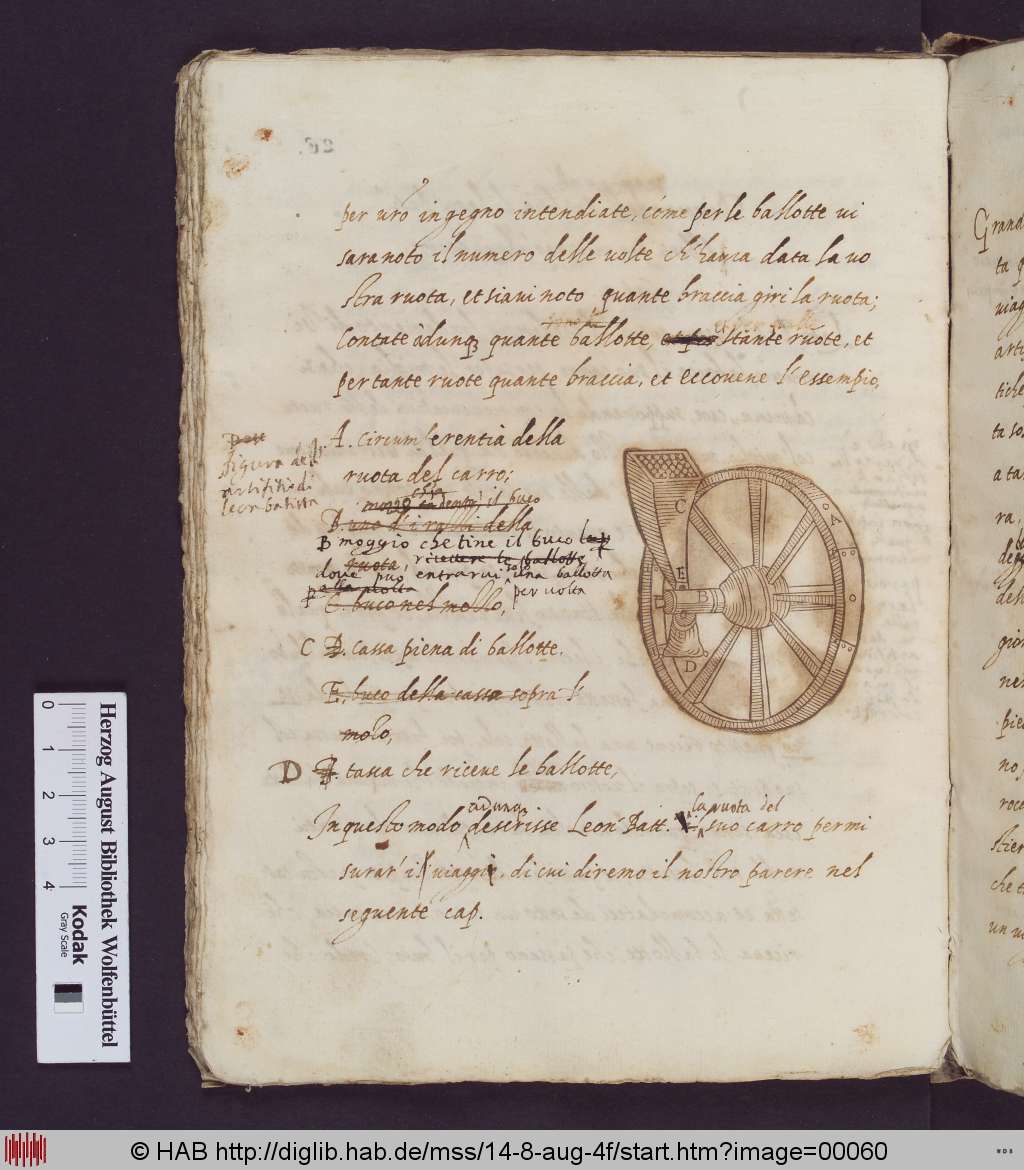 per uro ingegno intendiate, come per le ballotte ui
sara noto il numero delle uolte ch'haura data la uo
stra ruota, et siaui noto quante braccia giri la ruota;
Contate adunq quante ballotte, tante ruote, et
per tante ruote quante braccia, et eccouene l'essempio,
figura dell
artifitio di
leon batista
A. circumferentia della
ruota del carro;
il buco
B. uno di i raggi della
B moggio che tine il buco
ruota, riceuere le ballotte
doue puo entrarui solo una ballotta
per uolta
C. buco nel mollo,
C D. cassa piena di ballotte.
E. buco della cassa sopra 'l
molo,
D tassa che riceue le ballotte,
In questo modo adunq descrisse Leon Batt. la ruota del suo carro per mi
surar' il uiaggio, di cui diremo il nostro parere nel
seguente cap.
A
C
E
B
D
Grand
ta q
uiag
tich
ta so
a ta
ra,
gior
ne
pie
no
roc
stier
che
0 1 2 3 4
Kodak
Gray Scale
Herzog August Bibliothek Wolfenbüttel
© HAB http://diglib.hab.de/mss/14-8-aug-4f/start.htm?image=00060